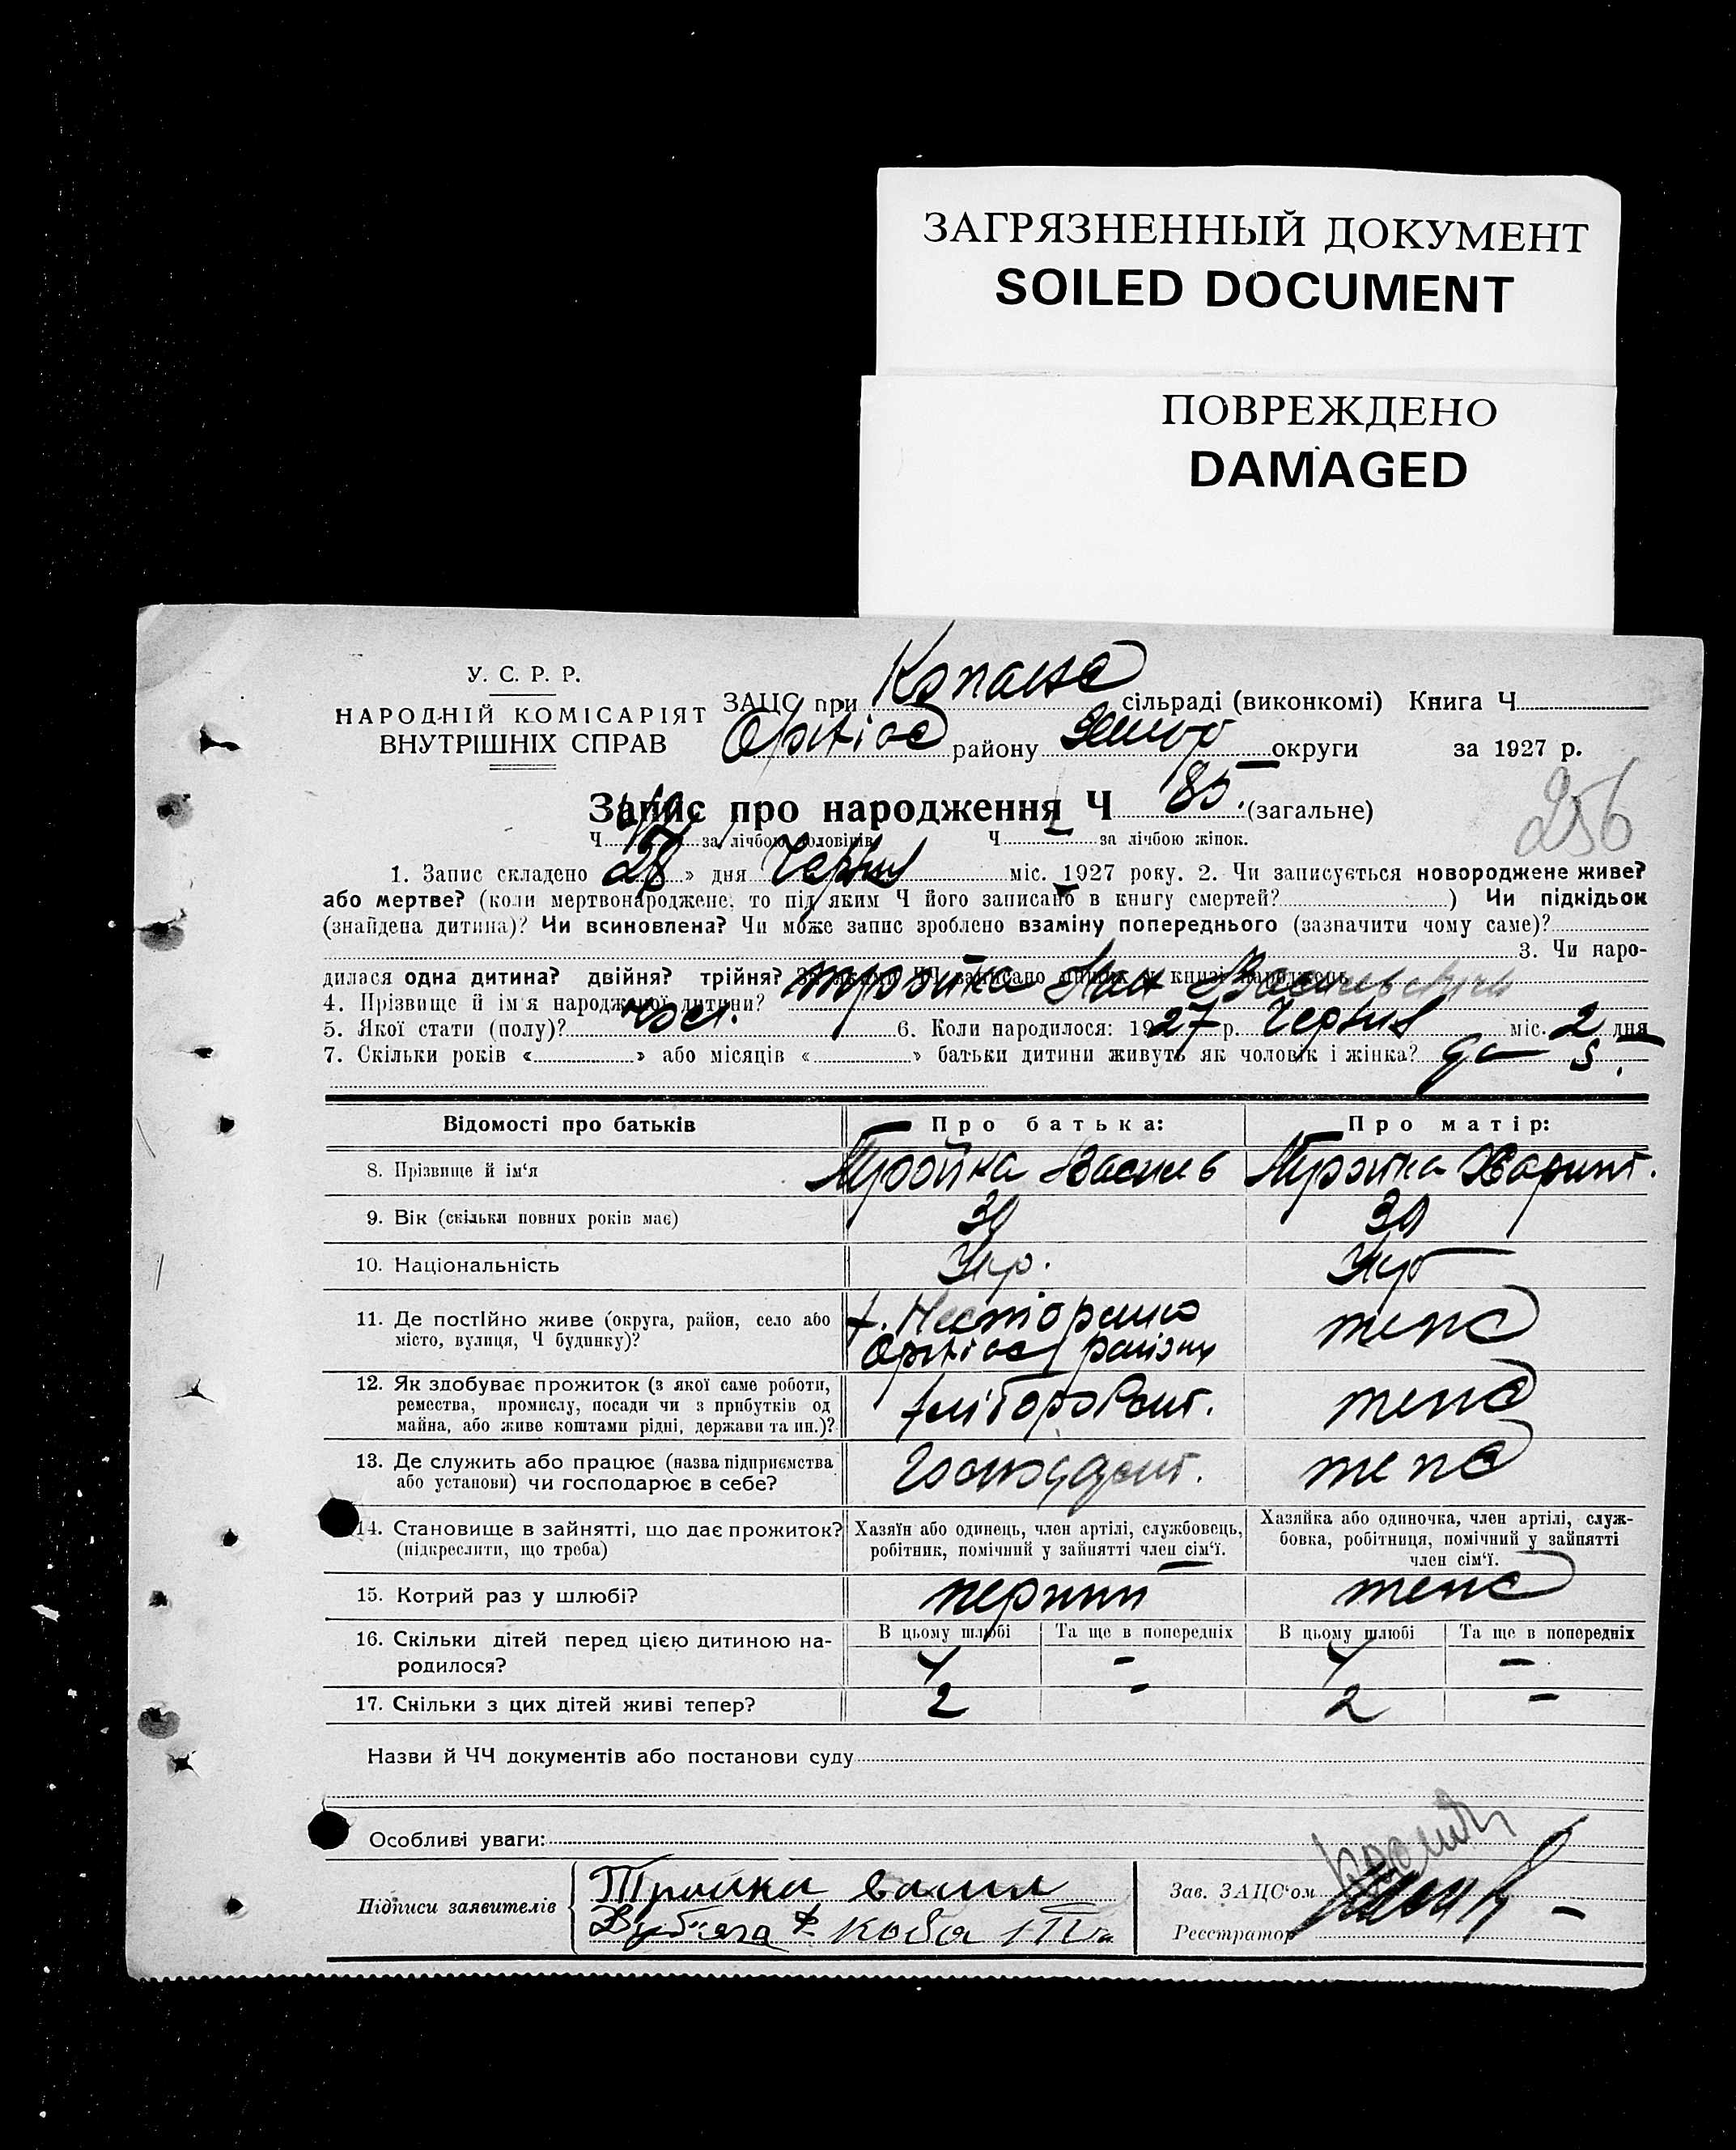 ЗАГРЯЗНЕННЫЙ ДОКУМЕНТ
SOILED DOCUMENT
ПОВРЕЖДЕНО
DAMAGED
У. С. Р. Р.
НАРОДНІЙ КОМІСАРІЯТ
ВНУТРІШНІХ СПРАВ
ЗАЦС при сільраді (виконкомі) Книга Ч
району округи за 1927 р.
256
Запис про народження Ч 85. (загальне)
Ч за лічбою чоловіків Ч за лічбою жінок.
1. Запис складено 28 » дня Червня міс. 1927 року. 2. Чи записується новороджене живе?
або мертве? (коли мертвонароджене, то під яким Ч його записано в книгу смертей? ) Чи підкідьок
(знайдена дитина)? Чи всиновлена? Чи може запис зроблено взаміну попереднього (зазначити чому саме)?
3. Чи наро-
дилася одна дитина? двійня? трійня? За якими ЧЧ записано инших у книзі народжень
4. Прізвище й ім'я народженої дитини? Тройка Іван Васильевич
5. Якої стати (полу)? чол. 6. Коли народилося: 1927 р. Червня міс. 25 дня
7. Скільки років « » або місяців « » батьки дитини живуть як чоловік і жінка? да
Відомості про батьків Про батька: Про матір:
8. Прізвище й ім'я Тройка Василь Тройка
9. Вік (скільки повних років має) 30 30
10. Національність Укр. Укр
11. Де постійно живе (округа, район, село або
місто, вулиця, Ч будинку)? теж
району
12. Як здобуває прожиток (з якої саме роботи,
ремества, промислу, посади чи з прибутків од
майна, або живе коштами рідні, держави та ин.)? хліборобст. теж
13. Де служить або працює (назва підприємства
або установи) чи господарює в себе? теж
14. Становище в зайнятті, що дає прожиток?
(підкреслити, що треба)
Хазяїн або одинець, член артілі, службовець,
робітник, помічний у зайнятті член сім'ї.
Хазяйка або одиночка, член артілі, служ-
бовка, робітниця, помічний у зайнятті
член сім'ї.
15. Котрий раз у шлюбі? перший теж
16. Скільки дітей перед цією дитиною на-
родилося?
В цьому шлюбі Та ще в попередніх В цьому шлюбі Та ще в попередніх
4 - 4 -
17. Скільки з цих дітей живі тепер? 2 - 2 -
Назви й ЧЧ документів або постанови суду
Особливі уваги:
Підписи заявителів Тройка Васил
Зав. ЗАЦС'ом
Реєстратор